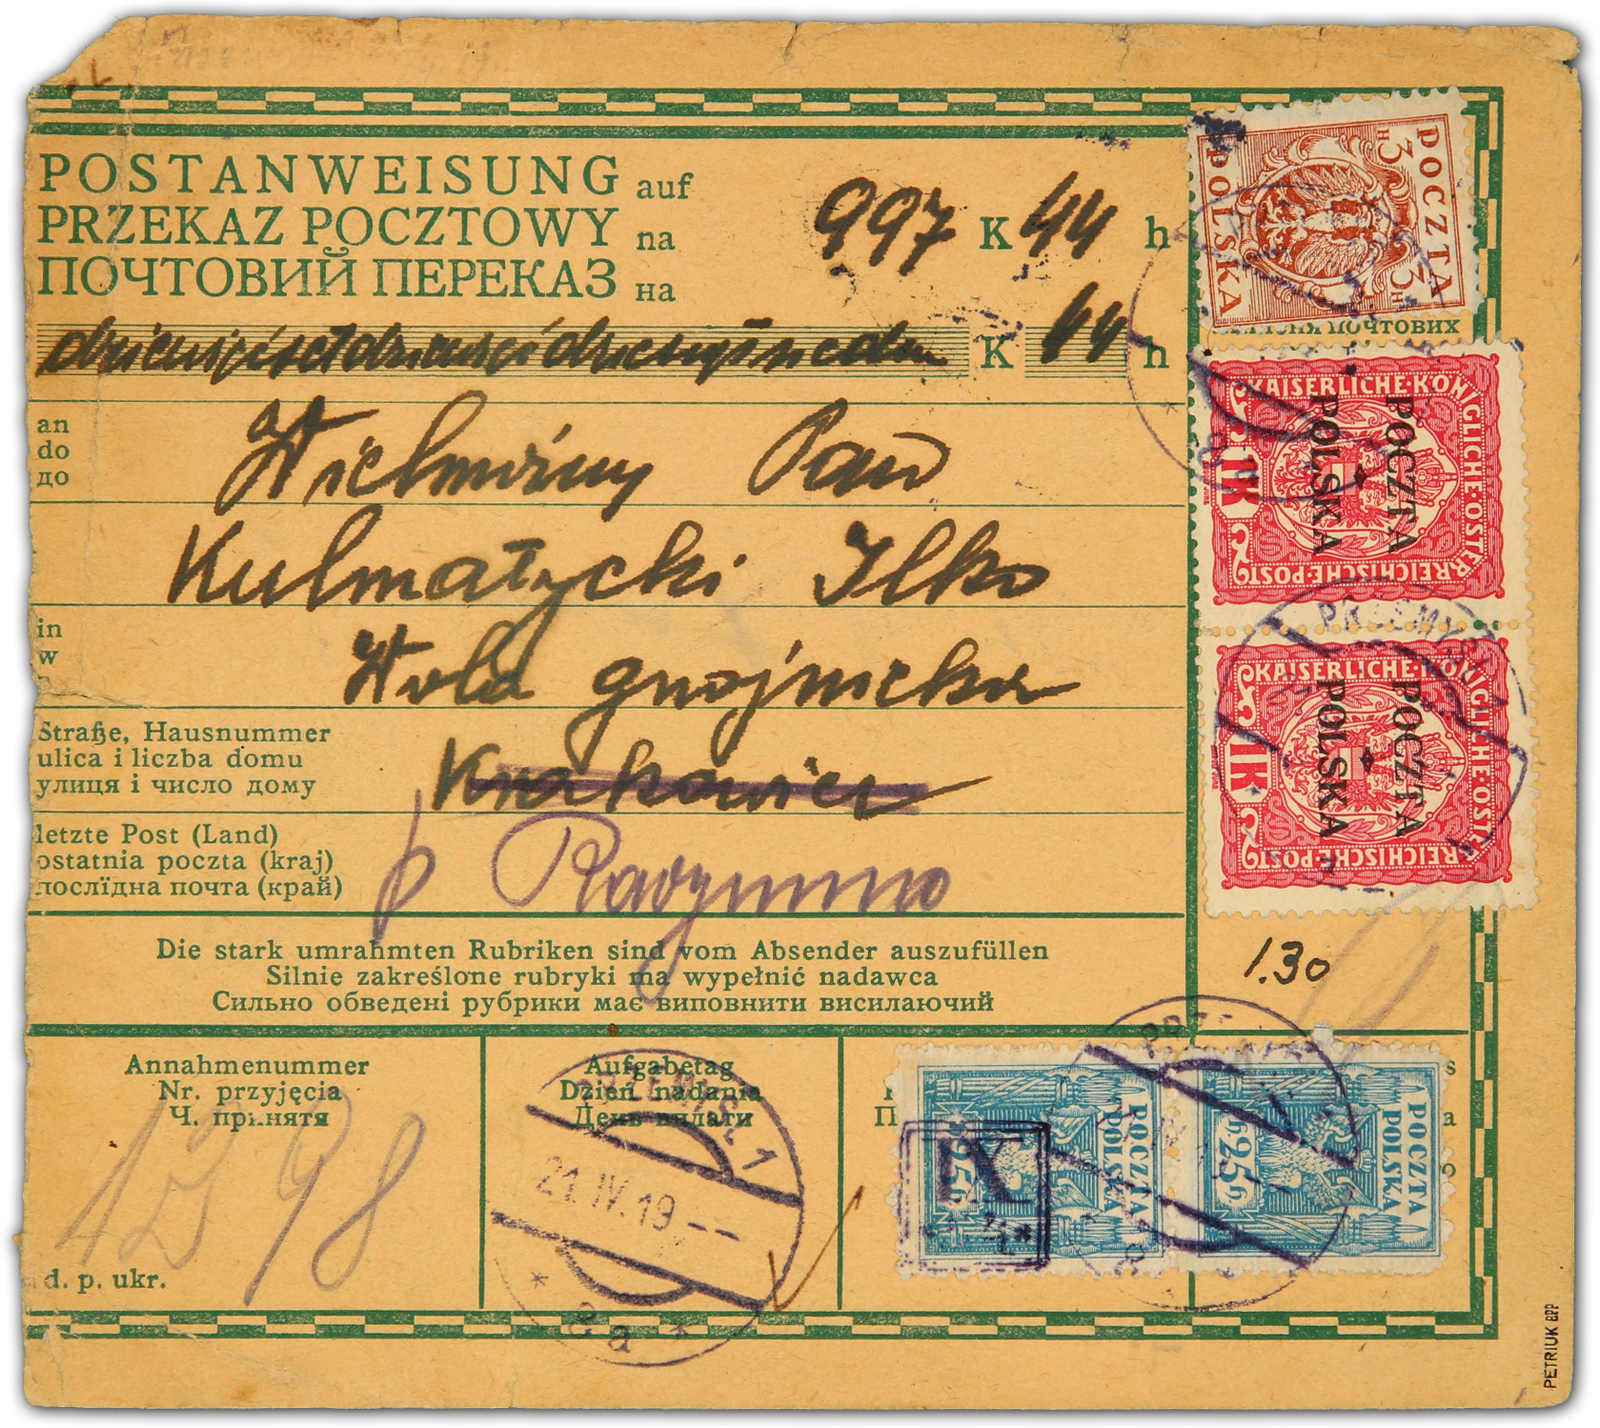 POSTANWEISUNG auf
PRZEKAZ POCZTOWY na 997 K 44 h
ПОЧТОВИЙ ПЕРЕКАЗ на
K 44 h
an
do
до
Wielmożny Pan
Kulmatycki Ilko
in
w
Wola gnojnicka
Straße, Hausnummer
ulica i liczba domu
улиця і число дому
Krakowiec
letzte Post (Land)
ostatnia poczta (kraj)
послїдна почта (край)
p Radymno
Die stark umrahmten Rubriken sind vom Absender auszufüllen
Silnie zakreślone rubryki ma wypełnić nadawca
Сильно обведені рубрики має виповнити висилаючий
Annahmenummer
Nr. przyjęcia
Ч. принятя
1298
d. p. ukr.
Aufgabetag
Dzień nadania
День видати
PRZEMYŚL 1
21.IV.19
* 2a *
POCZTA 3 H
POLSKA 3 H
почтових
KAISERLICHE·KÖNIGLICHE·ÖSTERREICHISCHE·POST
1K
POCZTA
POLSKA
PRZEMYŚL
KAISERLICHE·KÖNIGLICHE·ÖSTERREICHISCHE·POST
1K
POCZTA
POLSKA
1.30
POCZTA
POLSKA
25h
IX
POCZTA
POLSKA
25h
PETRIUK BPP